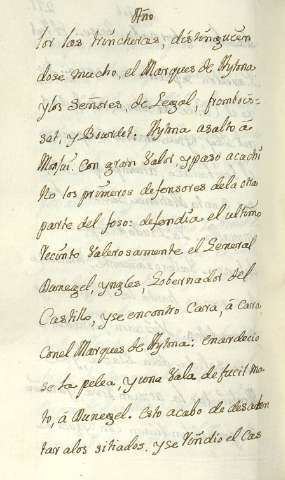 Año
por las trincheras, distinguien
dose mucho, el Marques de Aytona
y los Señores, de Legal, frombois-
sat, y Bourdet. Aytona asalto á
Monjui. con gran valor y paso acuchi
llo los primeros defensores de la otra
parte del foso: defendia el ultimo
recinto valerosamente el General
Dunegel, yngles, Gobernador del
Castillo, y se encontro Cara, á cara
con el Marques de Aytona: enardecio
se la pelea, y una vala de fucil ma
to, á Dunegel. esto acabo de desalen
tar a los sitiados. y se rindio el Cas